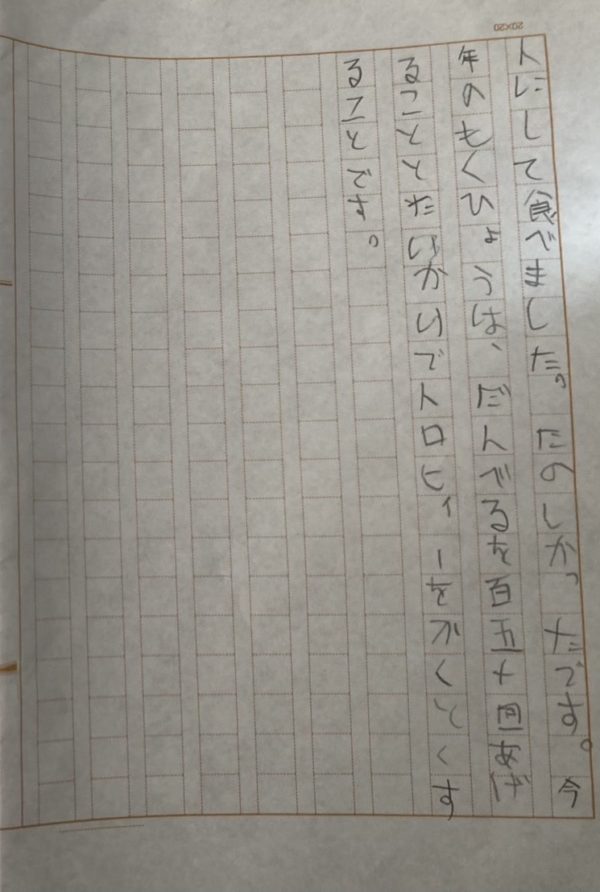 トにして食べました。たのしかったです。今
年のもくひょうは、だんべるを百五十回あげ
ることとたいかいでトロヒィーをかくとくす
ることです。
20×20